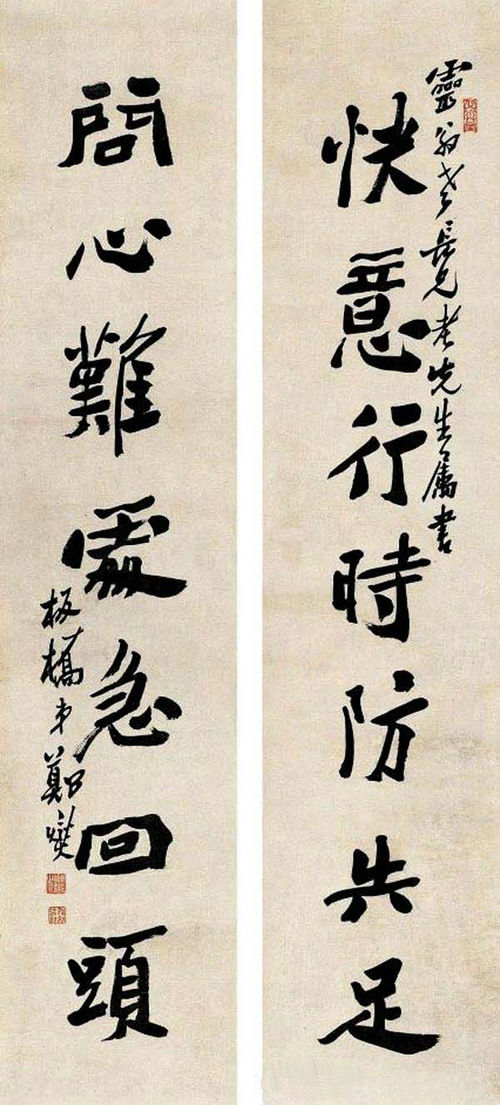 靈翁學長兄老先生屬書
快意行時防失足
問心難處急回頭
板橋弟鄭燮